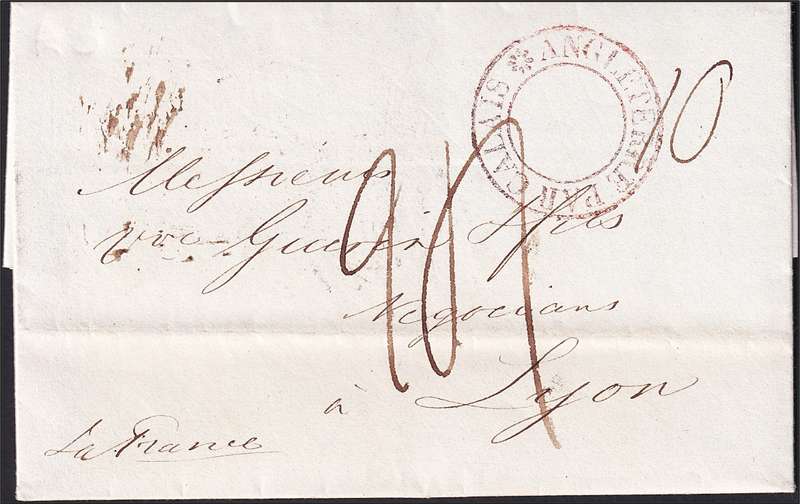 ANGLETERRE PAR CALAIS
10
Messieurs
vve Guerin & fils
Negocians
à Lyon
La France